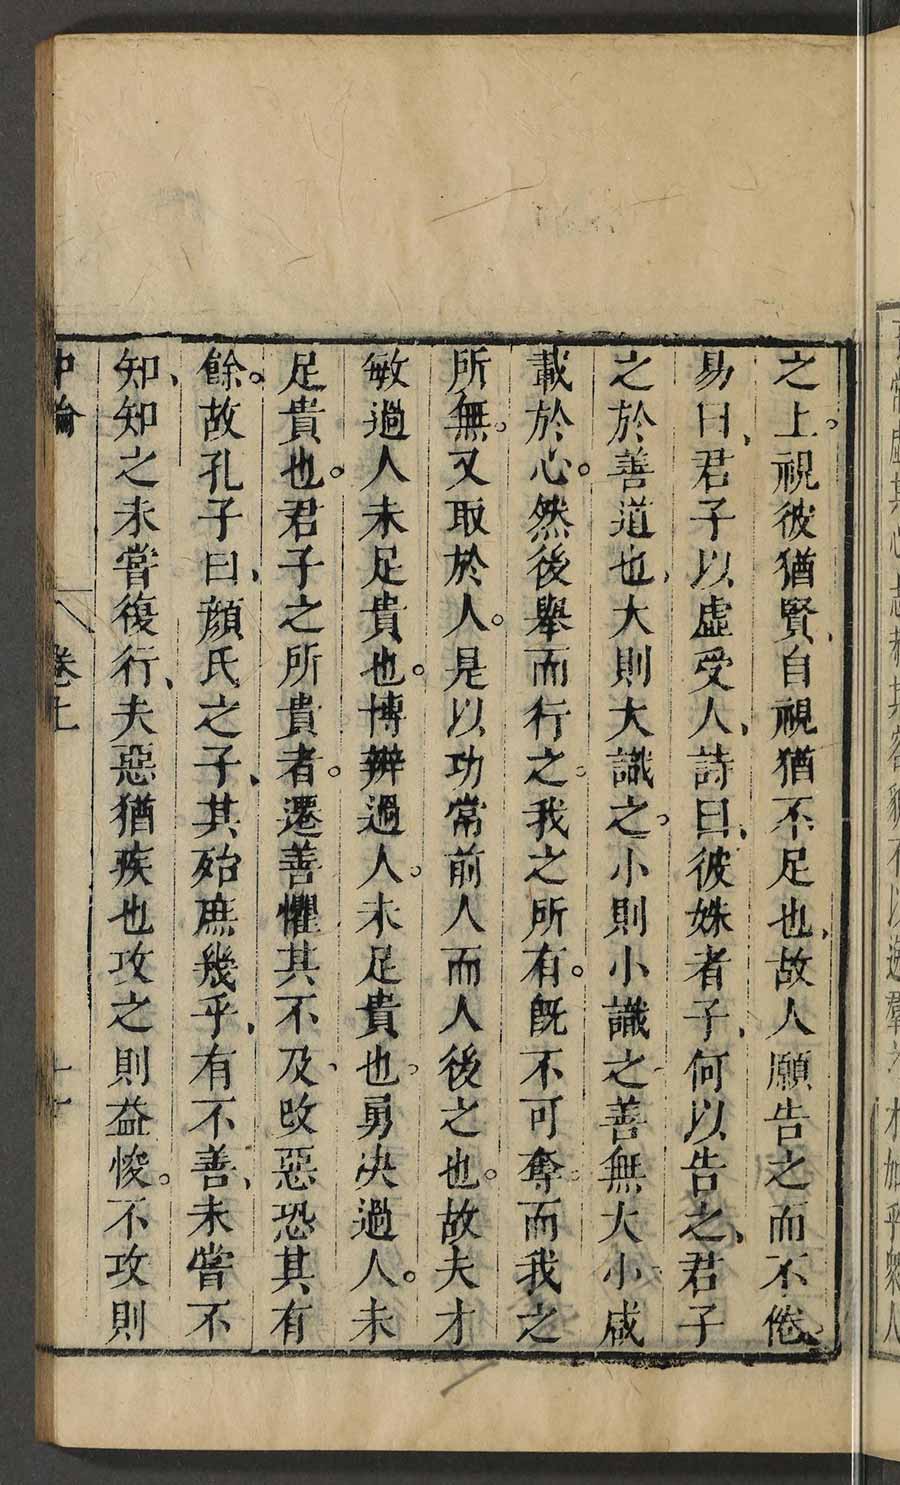 之上。視彼猶賢、自視猶不足也、故人願告之而不倦、
易曰、君子以虛受人、詩曰、彼姝者子、何以告之、君子
之於善道也、大則大識之。小則小識之。善無大小咸
載於心。然後舉而行之。我之所有。旣不可奪。而我之
所無。又取於人。是以功常前人而人後之也。故夫才
敏過人未足貴也。博辨過人。未足貴也。勇决過人。未
足貴也。君子之所貴者。遷善懼其不及、改惡恐其有
餘。故孔子曰、顔氏之子、其殆庶幾乎、有不善、未嘗不
知、知之未嘗復行、夫惡猶疾也攻之則益悛。不攻則
中論 卷上